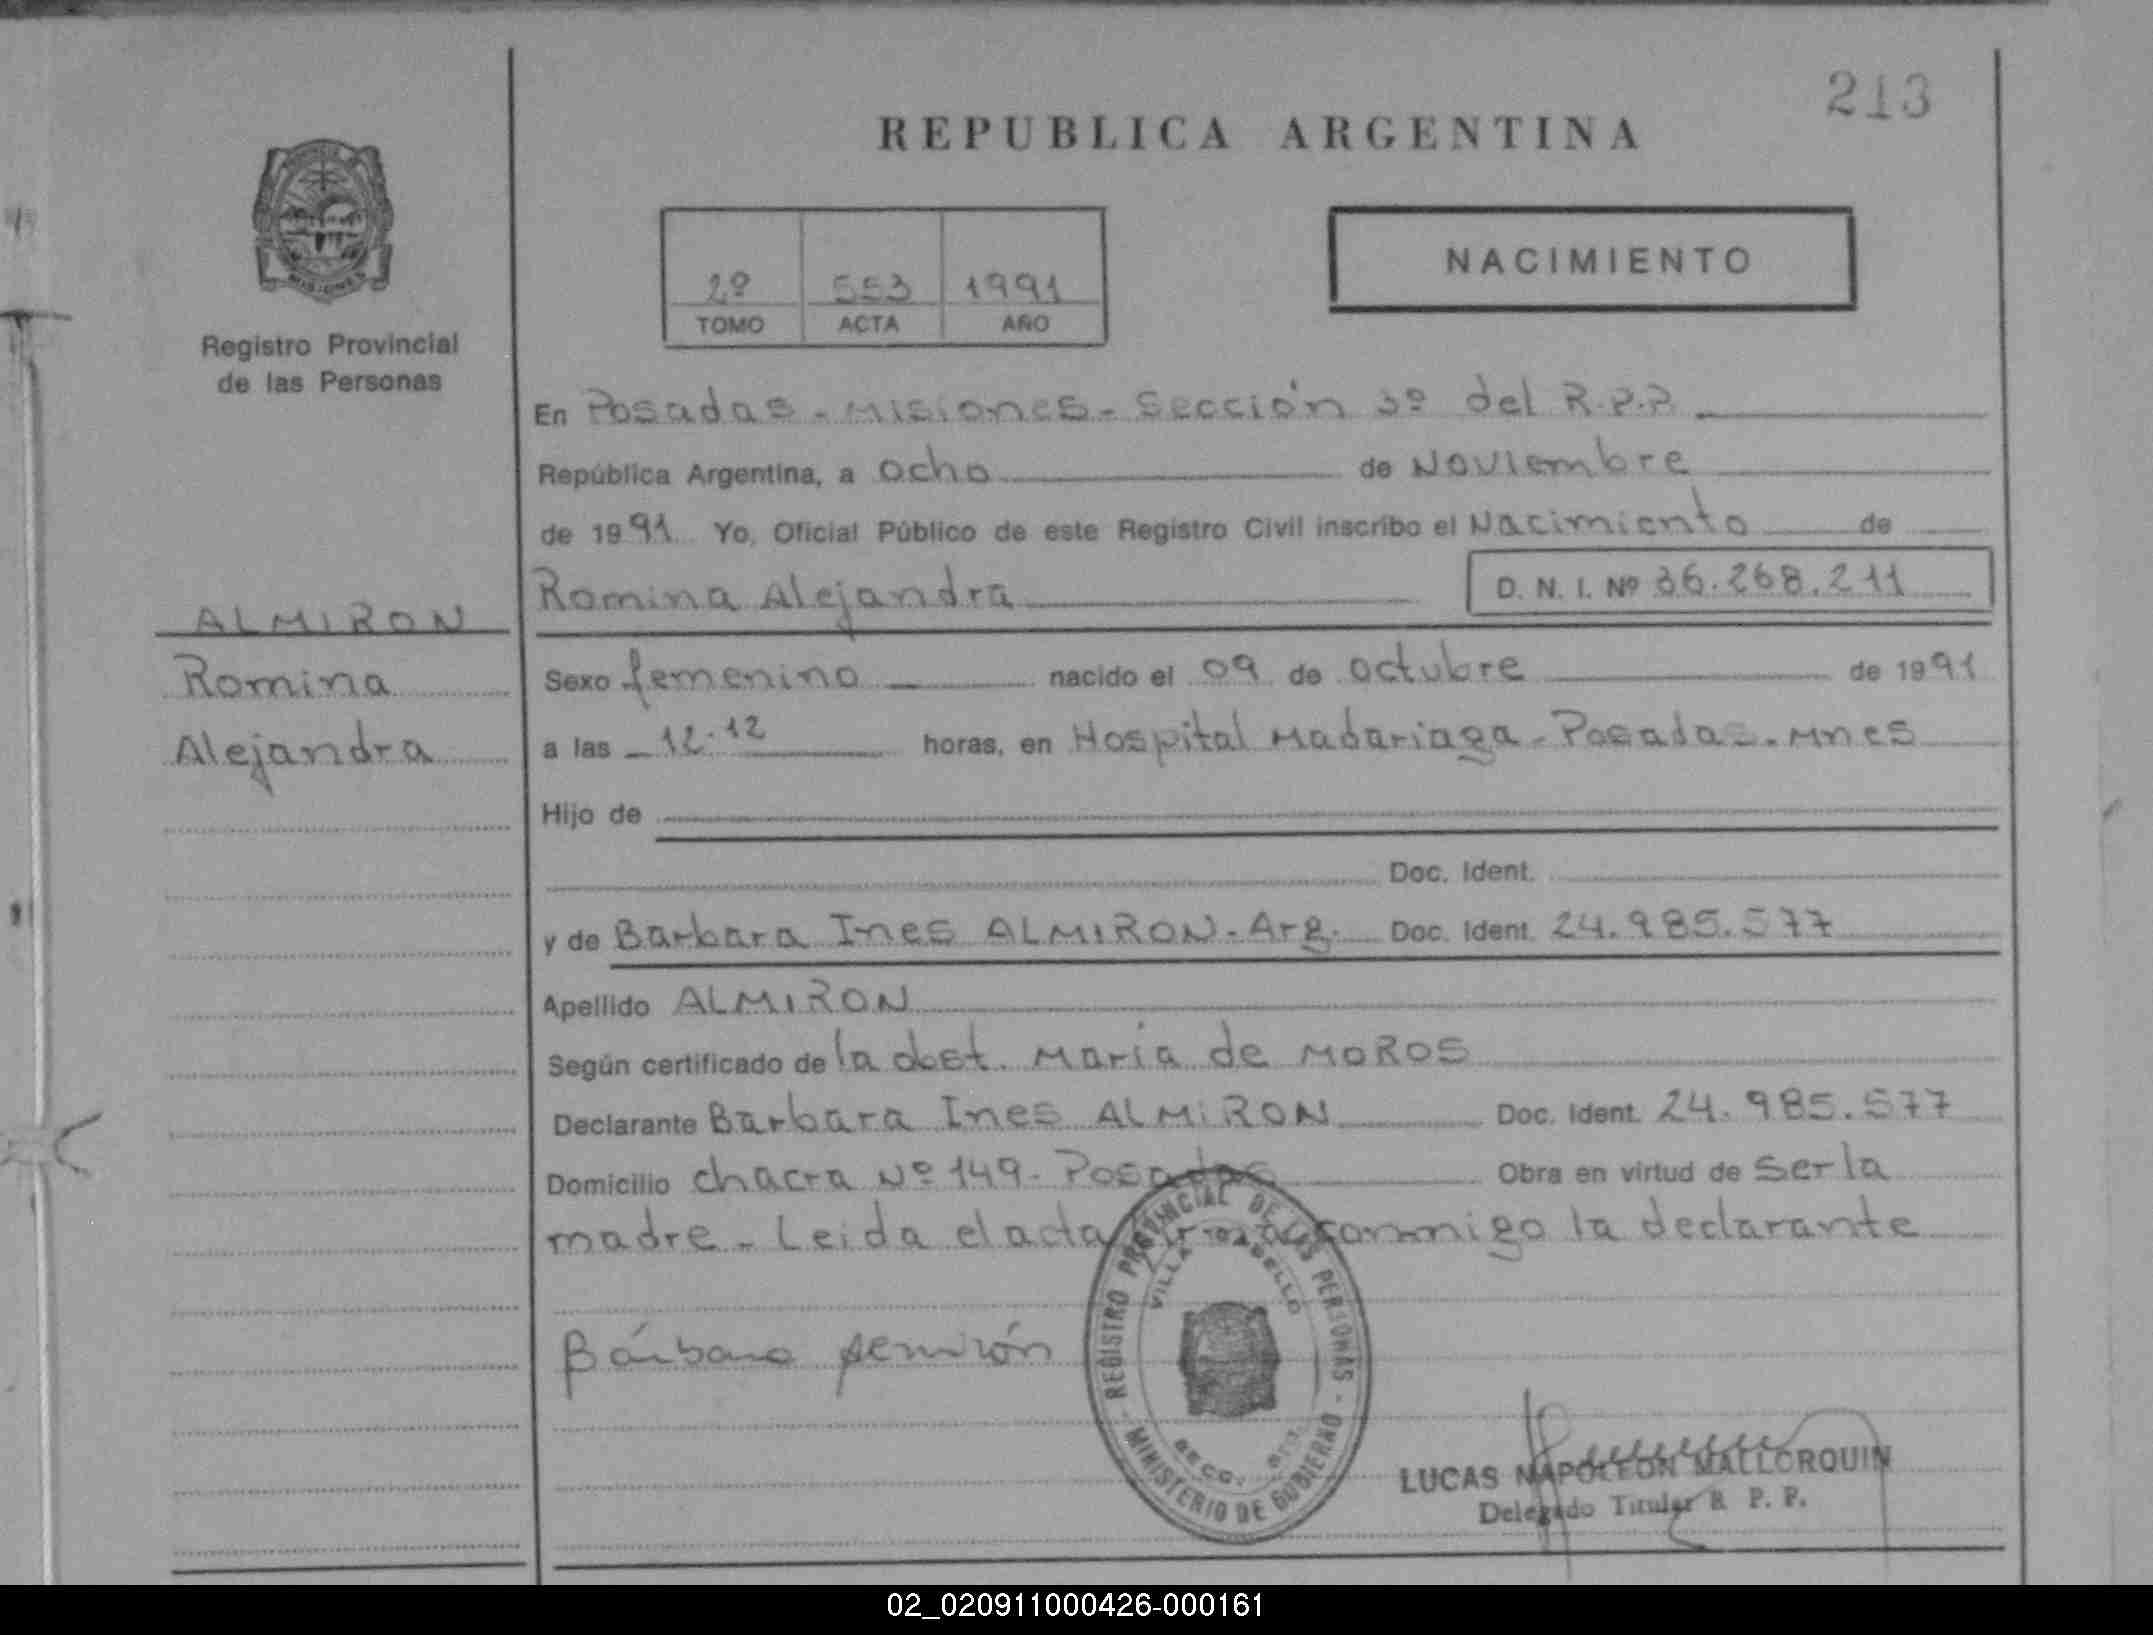 213
REPUBLICA ARGENTINA
NACIMIENTO
2º 553 1991
TOMO ACTA AÑO
Registro Provincial
de las Personas
En Posadas - Misiones - Sección 3º del R.P.P.
República Argentina, a ocho de Noviembre
de 1991 Yo, Oficial Público de este Registro Civil inscribo el Nacimiento de
Romina Alejandra D. N. I. Nº 36.268.211
ALMIRON
Romina
Alejandra
Sexo femenino nacido el 09 de octubre de 1991
a las 12.12 horas, en Hospital Madariaga - Posadas - Mnes
Hijo de
Doc. Ident.
y de Barbara Ines ALMIRON - Arg. Doc. Ident. 24.985.577
Apellido ALMIRON
Según certificado de la obst. Maria de MOROS
Declarante Barbara Ines ALMIRON Doc. Ident. 24.985.577
Domicilio chacra Nº 149 - Posadas Obra en virtud de ser la
madre - Leida el acta firma conmigo la declarante
Bárbara Almirón
REGISTRO PROVINCIAL DE LAS PERSONAS - MINISTERIO DE GOBIERNO -
VILLA CABELLO
SECC.
LUCAS NAPOLEON MALLORQUIN
Delegado Titular R. P. P.
02_020911000426-000161